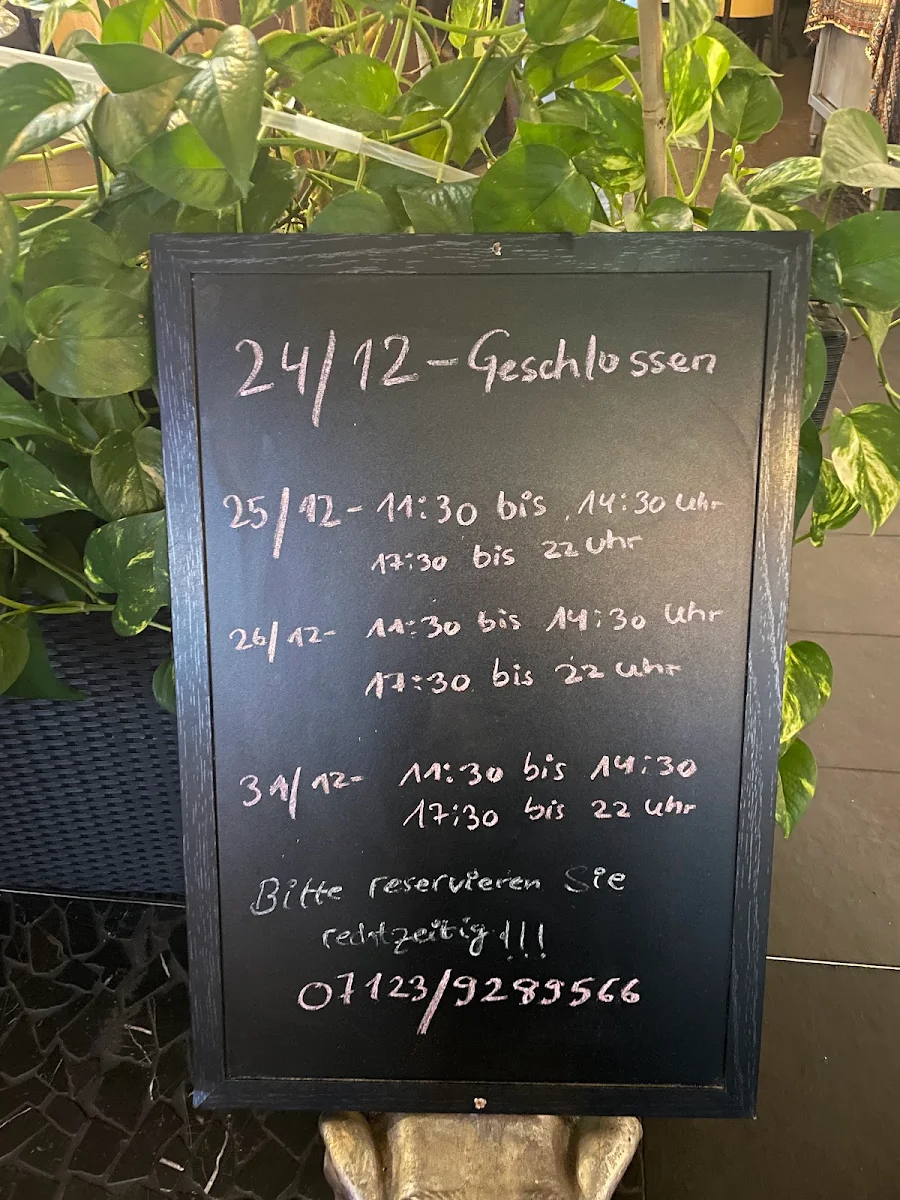 24/12-Geschlossen
25/12-11:30 bis 14:30 Uhr
17:30 bis 22 Uhr
26/12- 11:30 bis 14:30 Uhr
17:30 bis 22 Uhr
31/12- 11:30 bis 14:30
17:30 bis 22 Uhr
Bitte reservieren Sie
rechtzeitig!!!
07123/9289566